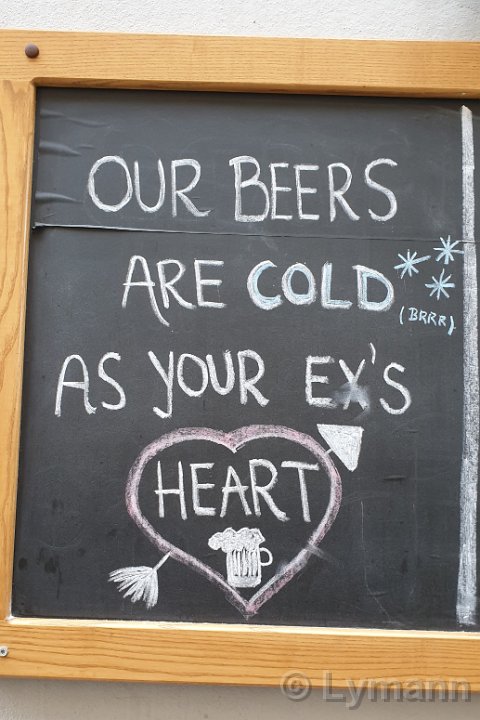 OUR BEERS
ARE COLD
(BRRR)
AS YOUR EX'S
HEART
© Lymann